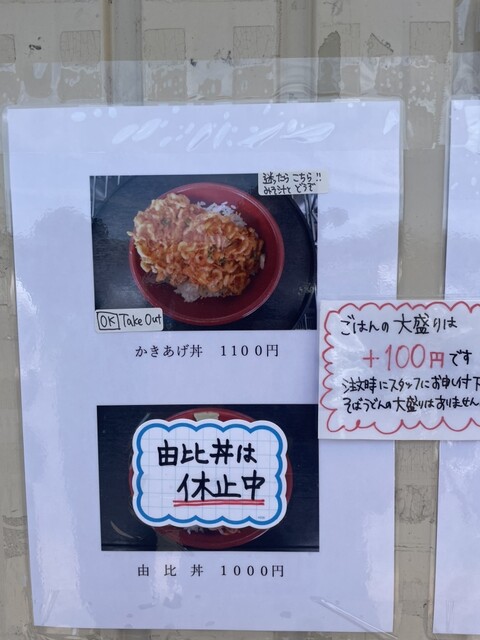 迷ったらこちら!!
みそ汁とどうぞ
OK Take Out
かきあげ丼 1100円
ごはんの大盛りは
+100円です
注文時にスタッフにお申し付け下
そばうどんの大盛りはありません
由比丼は
休止中
由比丼 1000円